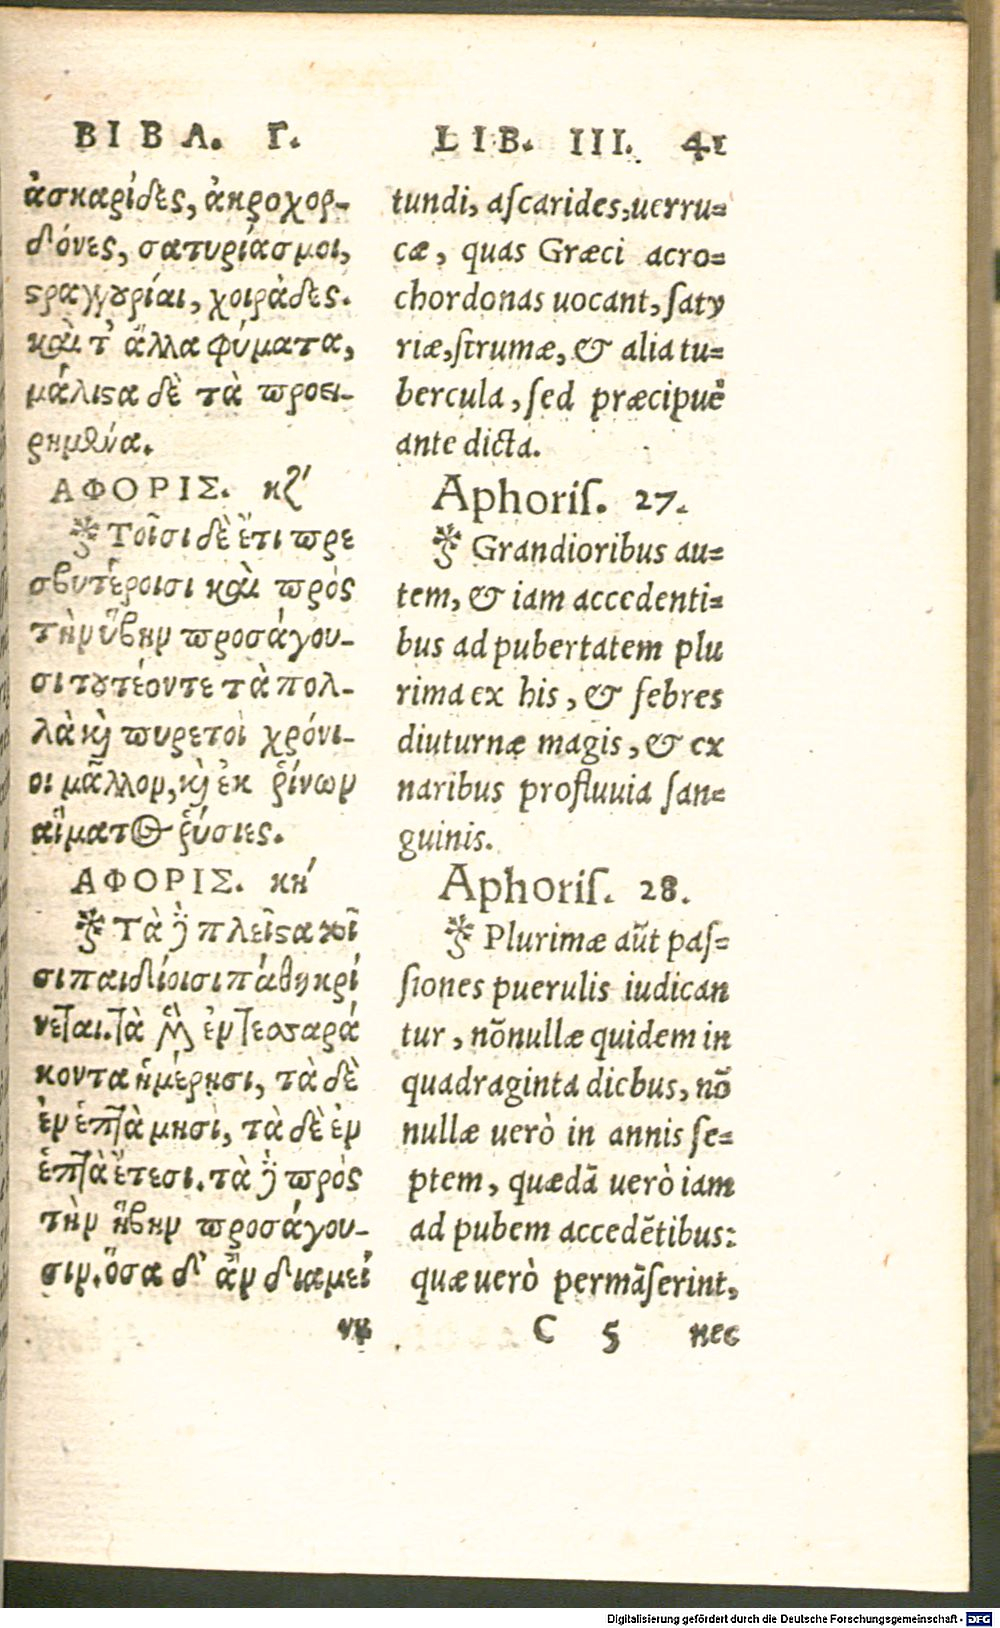 ΒΙΒΛ. Γ.
ἀσκαρίδες, ἀκροχορ-
δόνες, σατυρίασμοι,
ϛραγγουρίαι, χοιράδες.
καὶ τ' ἄλλα φύματα,
μάλιϛα δὲ τὰ προει-
ρημένα.
ΑΦΟΡΙΣ. κζ'
Τοῖσι δὲ ἔτι πρε
σβυτέροισι καὶ πρὸς
τὴν ὕβην προσάγου-
σι τουτέοντε τὰ πολ-
λὰ καὶ πυρετοὶ χρόνι-
οι μᾶλλον, καὶ ἐκ ῥίνων
αἵματος ῥύσιες.
ΑΦΟΡΙΣ. κη'
Τὰ δὲ πλεῖϛα τοῖ
σι παιδίοισι πάθη κρί
νεται. τὰ μὲν ἐν τεσσαρά
κοντα ἡμέρῃσι, τὰ δὲ
ἐν ἑπτὰ μησὶ, τὰ δὲ ἐν
ἑπτὰ ἔτεσι. τὰ δὲ πρὸς
τὴν ἥβην προσάγου-
σιν. ὅσα δ' ἂν διαμεί
νῃ
LIB. III. 41
tundi, aſcarides, uerru=
cæ, quas Græci acro=
chordonas uocant, ſaty
riæ, ſtrumæ, & alia tu=
bercula, ſed præcipuè
ante dicta.
Aphoriſ. 27.
Grandioribus au=
tem, & iam accedenti=
bus ad pubertatem plu
rima ex his, & febres
diuturnæ magis, & ex
naribus profluuia ſan=
guinis.
Aphoriſ. 28.
Plurimæ aūt paſ=
ſiones puerulis iudican
tur, nōnullæ quidem in
quadraginta diebus, nō
nullæ uerò in annis ſe=
ptem, quædā uerò iam
ad pubem accedētibus:
quæ uerò permāſerint,
C 5 nec
Digitalisierung gefördert durch die Deutsche Forschungsgemeinschaft - DFG